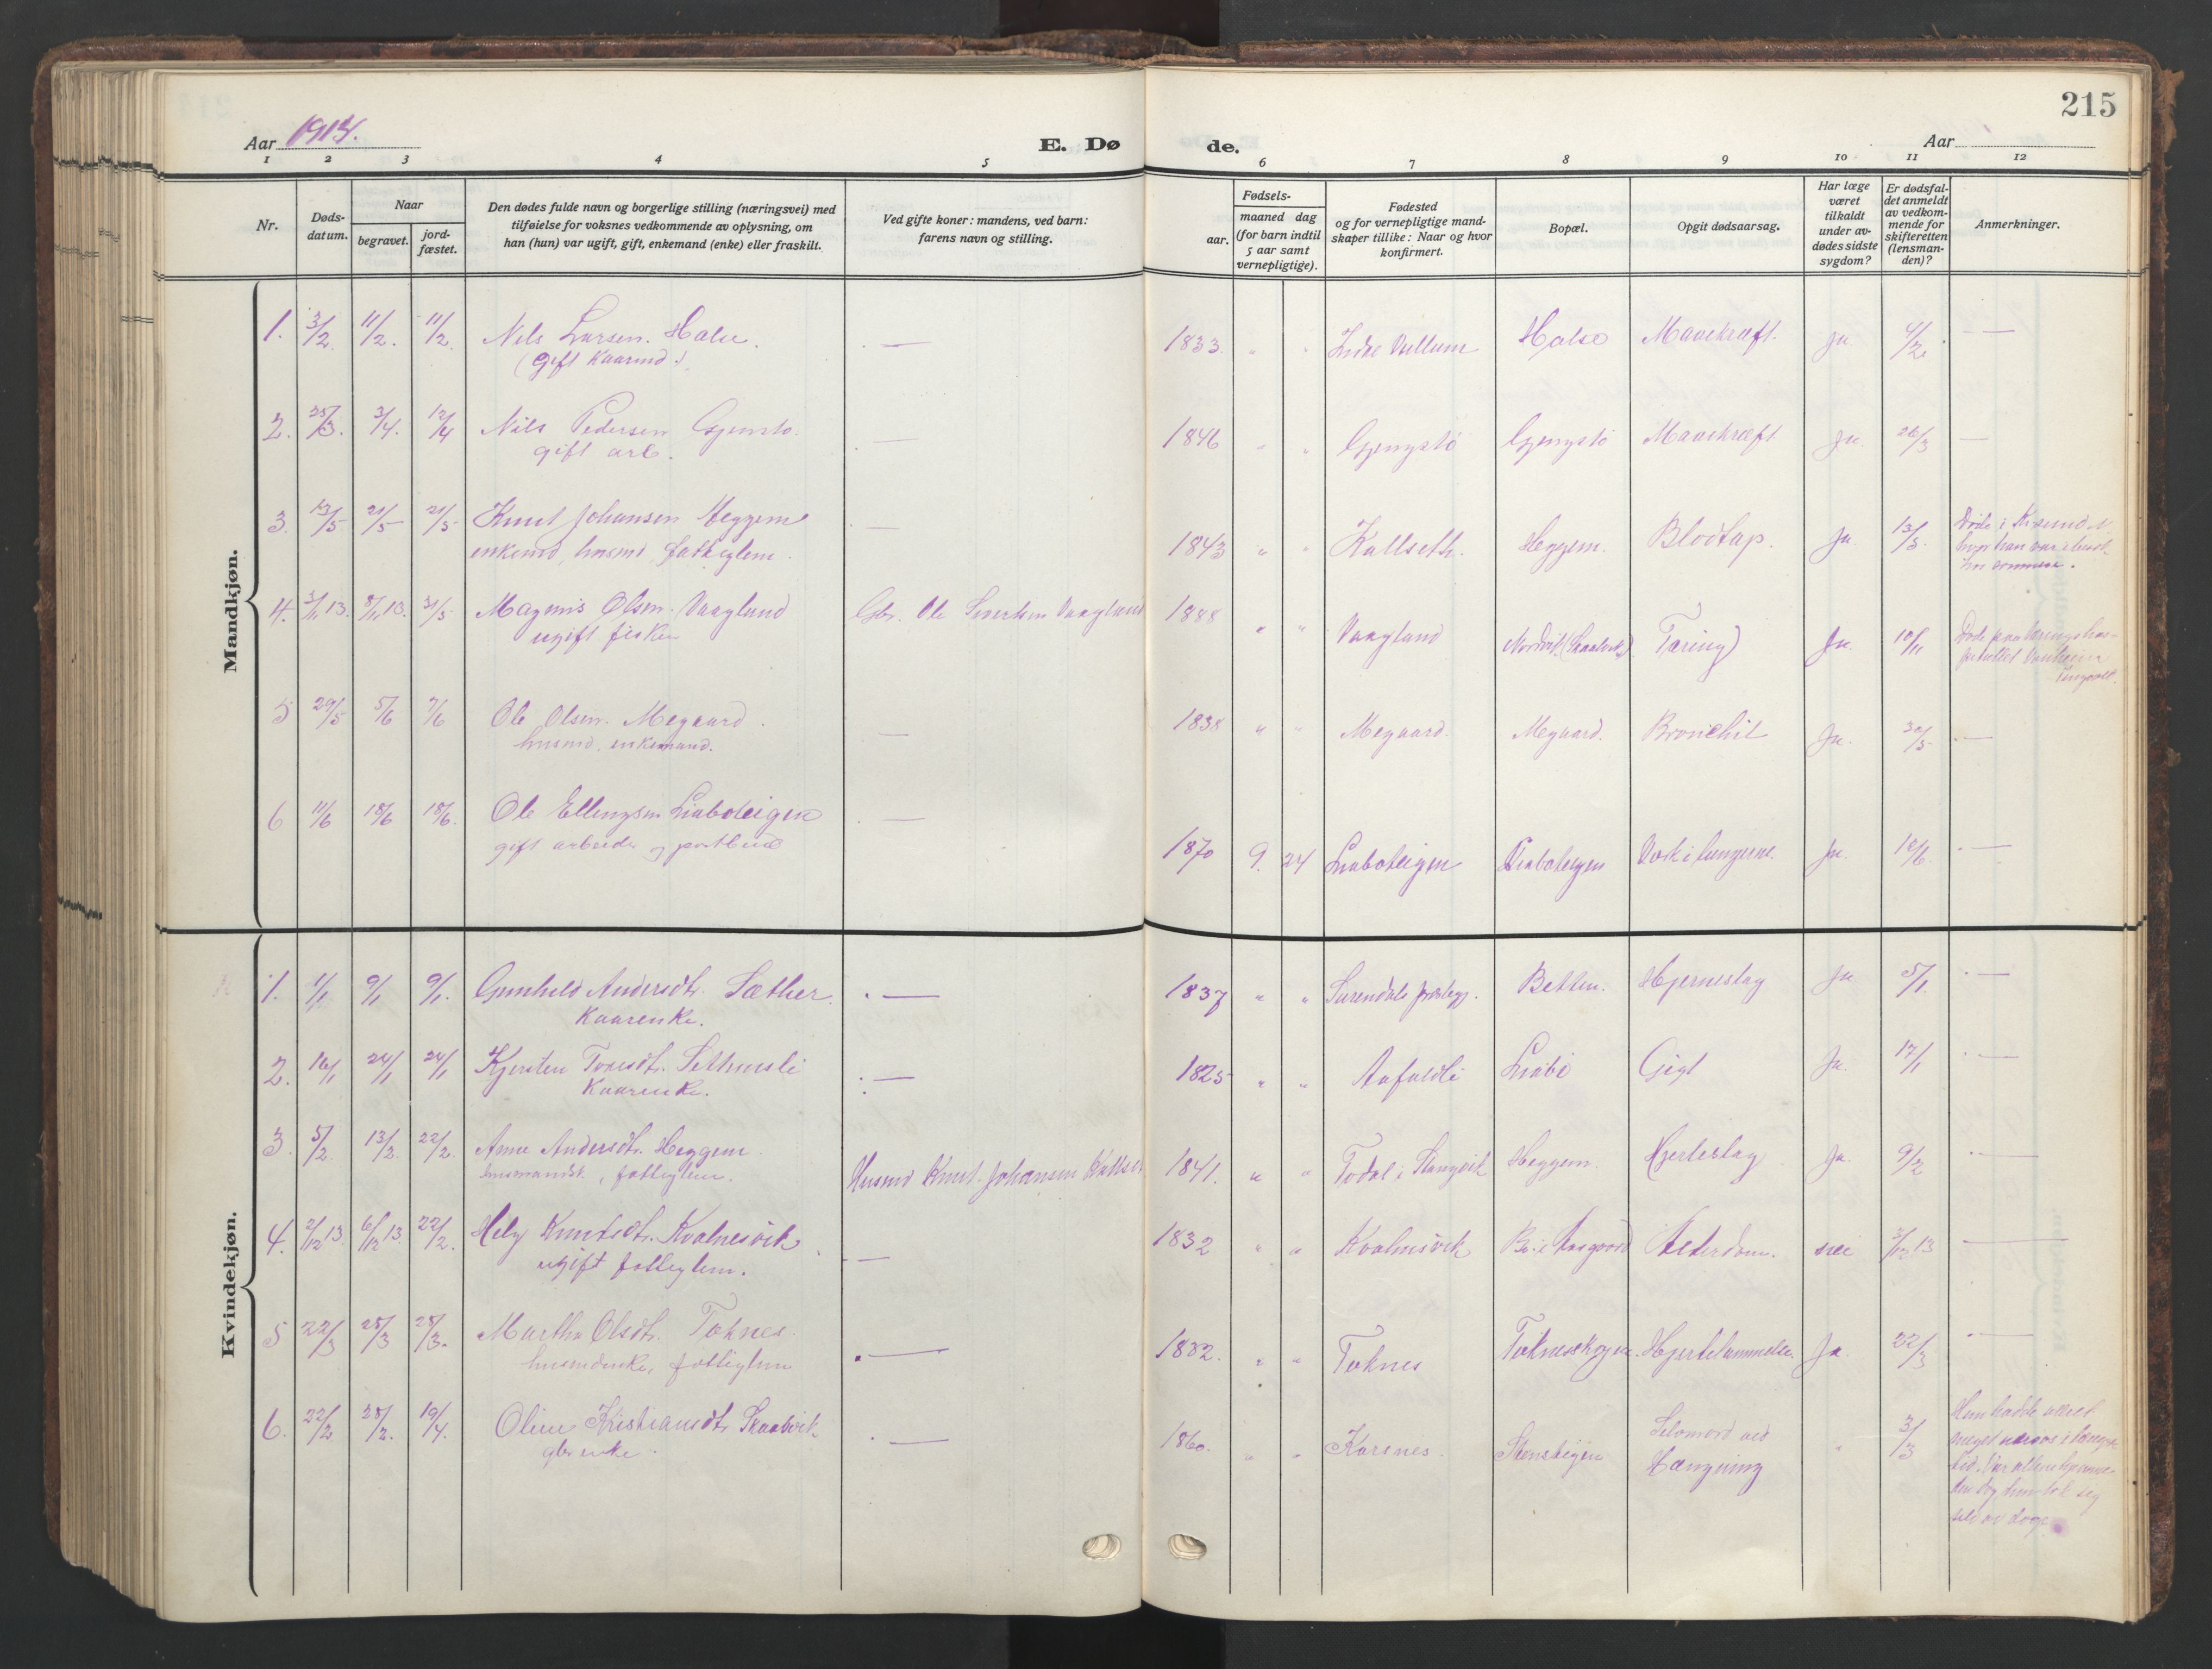 215
Aar 1914.
E. Dø
de.
Aar
1 2 3 4 5 6 7 8 9 10 11 12
Nr.
Døds-
datum.
Naar
begravet.
jord-
fæstet.
Den dødes fulde navn og borgerlige stilling (næringsvei) med
tilføielse for voksnes vedkommende av oplysning, om
han (hun) var ugift, gift, enkemand (enke) eller fraskilt.
Ved gifte koner: mandens, ved barn:
farens navn og stilling.
Fødsels-
aar.
maaned dag
(for barn indtil
5 aar samt
vernepligtige).
Fødested
og for vernepligtige mand-
skaper tillike: Naar og hvor
konfirmert.
Bopæl.
Opgit dødsaarsag.
Har læge
været
tilkaldt
under av-
dødes sidste
sygdom?
Er dødsfal-
det anmeldt
av vedkom-
mende for
skifteretten
(lensman-
den)?
Anmerkninger.
Mandkjøn.
1. 3/2 11/2. 11/2. Nils Larsen Halse. — 1833. " " Indre Halse Mavekræft. Ja 4/2. —
(gift Kaarmd.)
2. 25/3. 3/4. 12/4 Nils Pedersen — 1846 " " Gjengstö Gjengstö Mavekræft Ja. 26/3 —
gift arb.
3. 13/5 21/5 21/5 Knut Johansen Heggem — 1843 " " Kallseth. Heggem. Blodtap. Ja 13/5.
enkemd, husmd, fattiglem.
Døde i Krsund N
hvor han var i besøk
4. 3/11 13. 8/11 13. 31/5 Magnus Olsen Vaagland Gbr. Ole Sivertsen Vaagland 1888 " " Vaagland Nordvik (Skaalvik) Tæring Ja. 10/11
ugift fisker
Døde paa tæringshos-
pitallet
Tingvoll.
5 29/5 5/6 7/6 Ole Olsen Megaard. — 1838 " " Megaard. Megaard. Bronchit Ja. 30/5 —
husmd. enkemand.
6 11/6 18/6 18/6. Ole Ellingsen Liaboteigen — 1870 9. 24 Liaboteigen Liaboteigen Verk i lungerne. Ja. 12/6. —
gift arbeider og postbud
Kvindekjøn.
1. 1/1 9/1 9/1. Gunhild Andersdtr. Sæther. — 1837 " " Surendals prestegj. Betten. Hjerneslag Ja 5/1. —
Kaarenke.
2. 16/1 24/1 24/1 Kjersten Toresdtr. — 1825 " " Liabö Gigt Ja. 17/1 —
Kaarenke.
3 5/2 13/2 22/2. Anne Andersdtr. Heggem. Husmd Knut Johansen 1841. " " Todal i Stangvik Heggem. Hjerteslag Ja. 9/2 —
husmandsk., fattiglem.
4. 2/12 13. 6/12 13. 22/2. Knutsdtr. Kvalnesvik — 1832 " " Kvalnesvik Alderdom. nei 3/12 13 —
ugift fattiglem.
5 22/3 28/3 28/3. Martha Olsdtr. Toknes. — 1832. " " Toknes Hjertelammelse. Ja 22/3 —
husmdenke, fattiglem
6. 22/2 28/2. 19/4. Oline Kristiansdtr. Skaalvik — 1860. " " Korsnes. Selvmord ved 3/3
gbr enke. Hængning
Hun hadde været
meget nervøs i længre
tid. Var alene hjemme
den dag hun tok seg